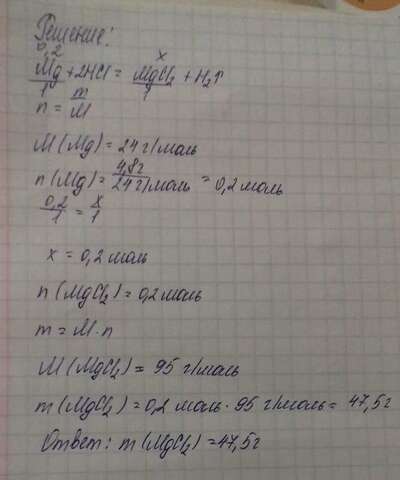 Решение:
0,2 x
Mg + 2HCl = MgCl₂ + H₂↑
1 1
n = m/M
M(Mg) = 24 г/моль
n(Mg) = 4,8г/24 г/моль = 0,2 моль
0,2/1 = x/1
x = 0,2 моль
n(MgCl₂) = 0,2 моль
m = M·n
M(MgCl₂) = 95 г/моль
m(MgCl₂) = 0,2 моль · 95 г/моль = 47,5г
Ответ: m(MgCl₂) = 47,5г